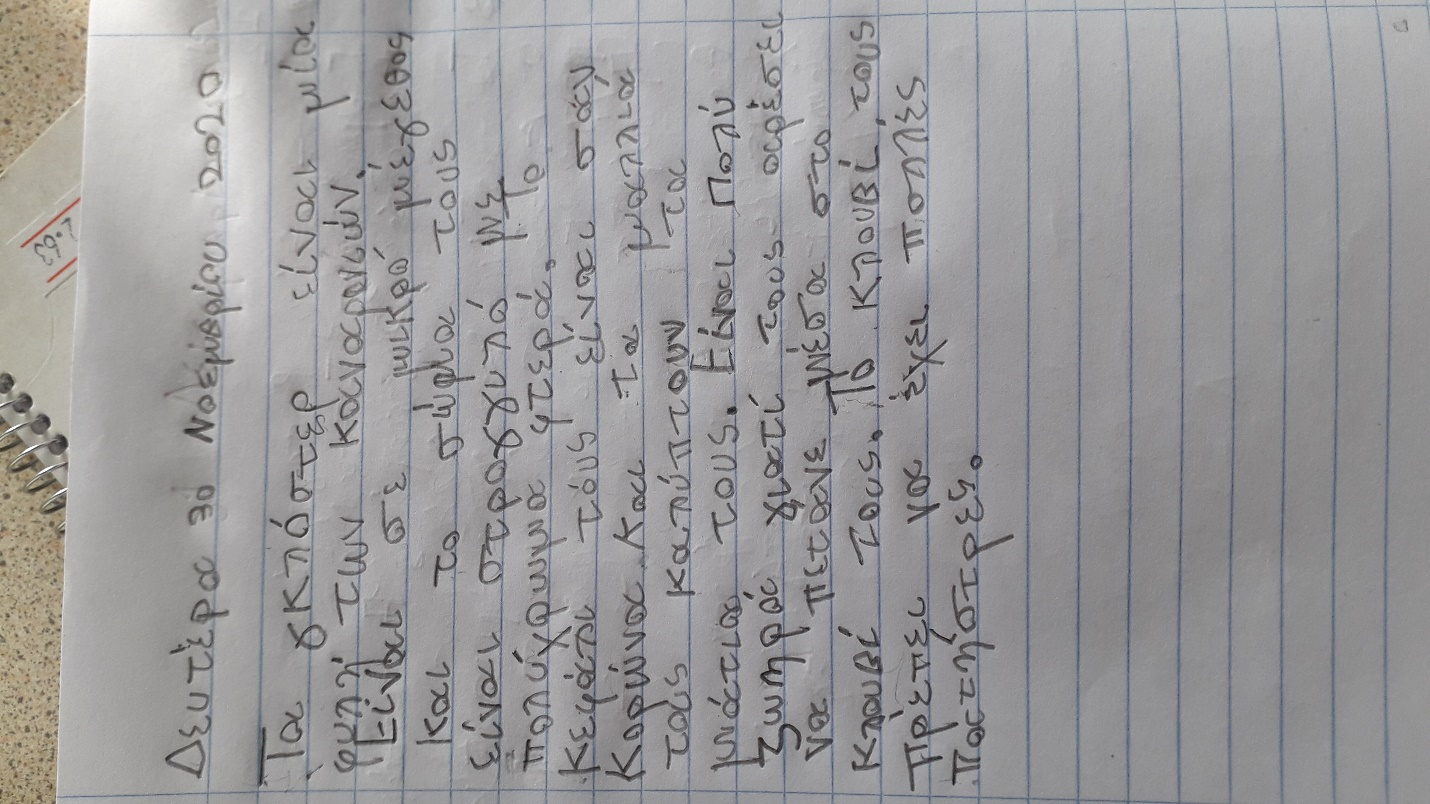 Δευτέρα 30 Νοεμβρίου 2020
Τα γκλόστερ είναι μία
φυλή των καναρινιών.
Είναι σε μικρό μέγεθος
και το σώμα τους
είναι στρογγυλό με
πολύχρωμα φτερά. Το
κεφάλι τούς είναι σάν
κορώνα. Και τα μαλλιά
τους καλύπτουν τα
μάτια τους. Είναι πολύ
ζωηρά γιατί τους αρέσει
να πετάνε μέσα στο
κλουβί τους. Το κλουβί τους
πρέπει να έχει πολλές
πατήστρες.
2.63